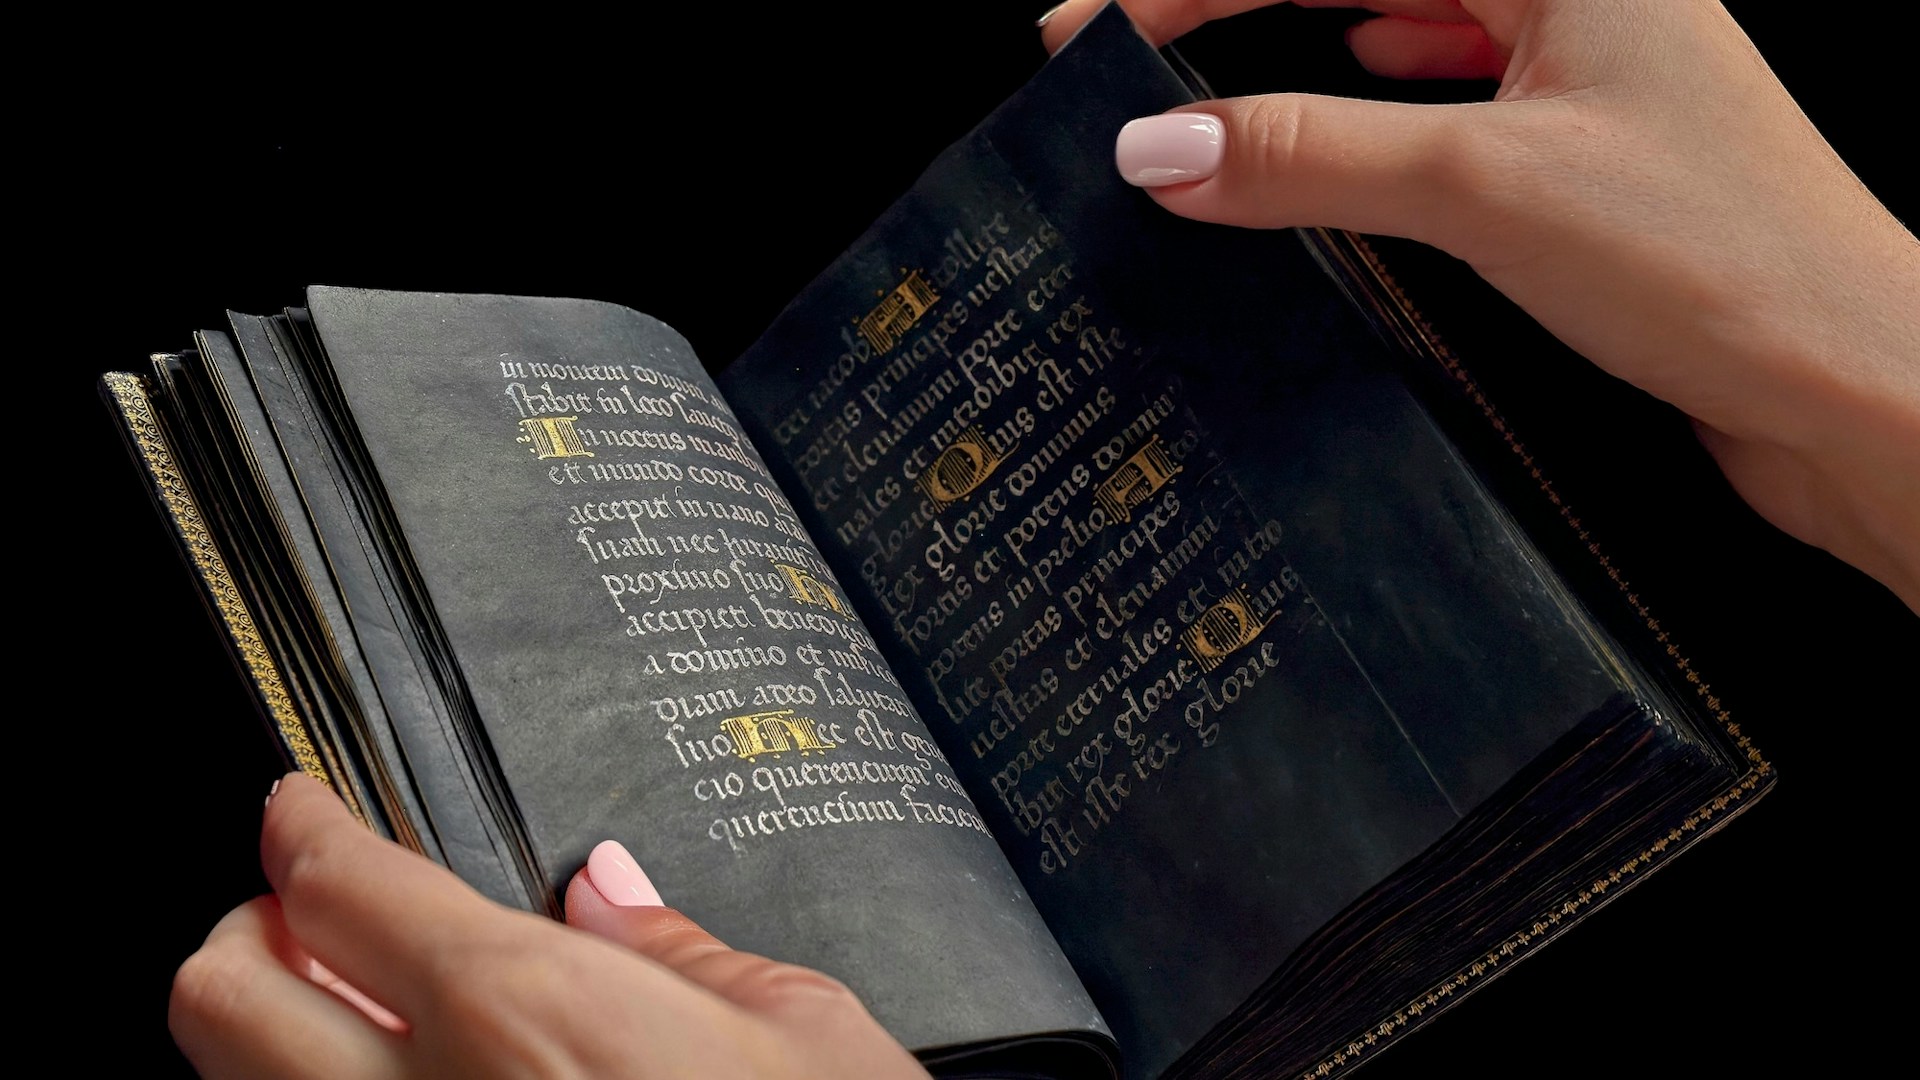 in montem domini
stabit in loco sancto
Innocens manib
et mundo corde qu
accepit in uano ani
suam nec iurauit
proximo suo. Hi
accipiet benedictio
a domino et miseri
diam a deo salutari
suo. Hec est gene
cio querencium eu
querencium faciem
dei iacob. Atollite
portas principes uestras
et eleuamini porte eter
nales et introibit rex
glorie. Quis est iste
rex glorie dominus
fortis et potens dominus
potens in prelio. Atto
lite portas principes
uestras et eleuamini
porte eternales et intro
ibit rex glorie. Quis
est iste rex glorie